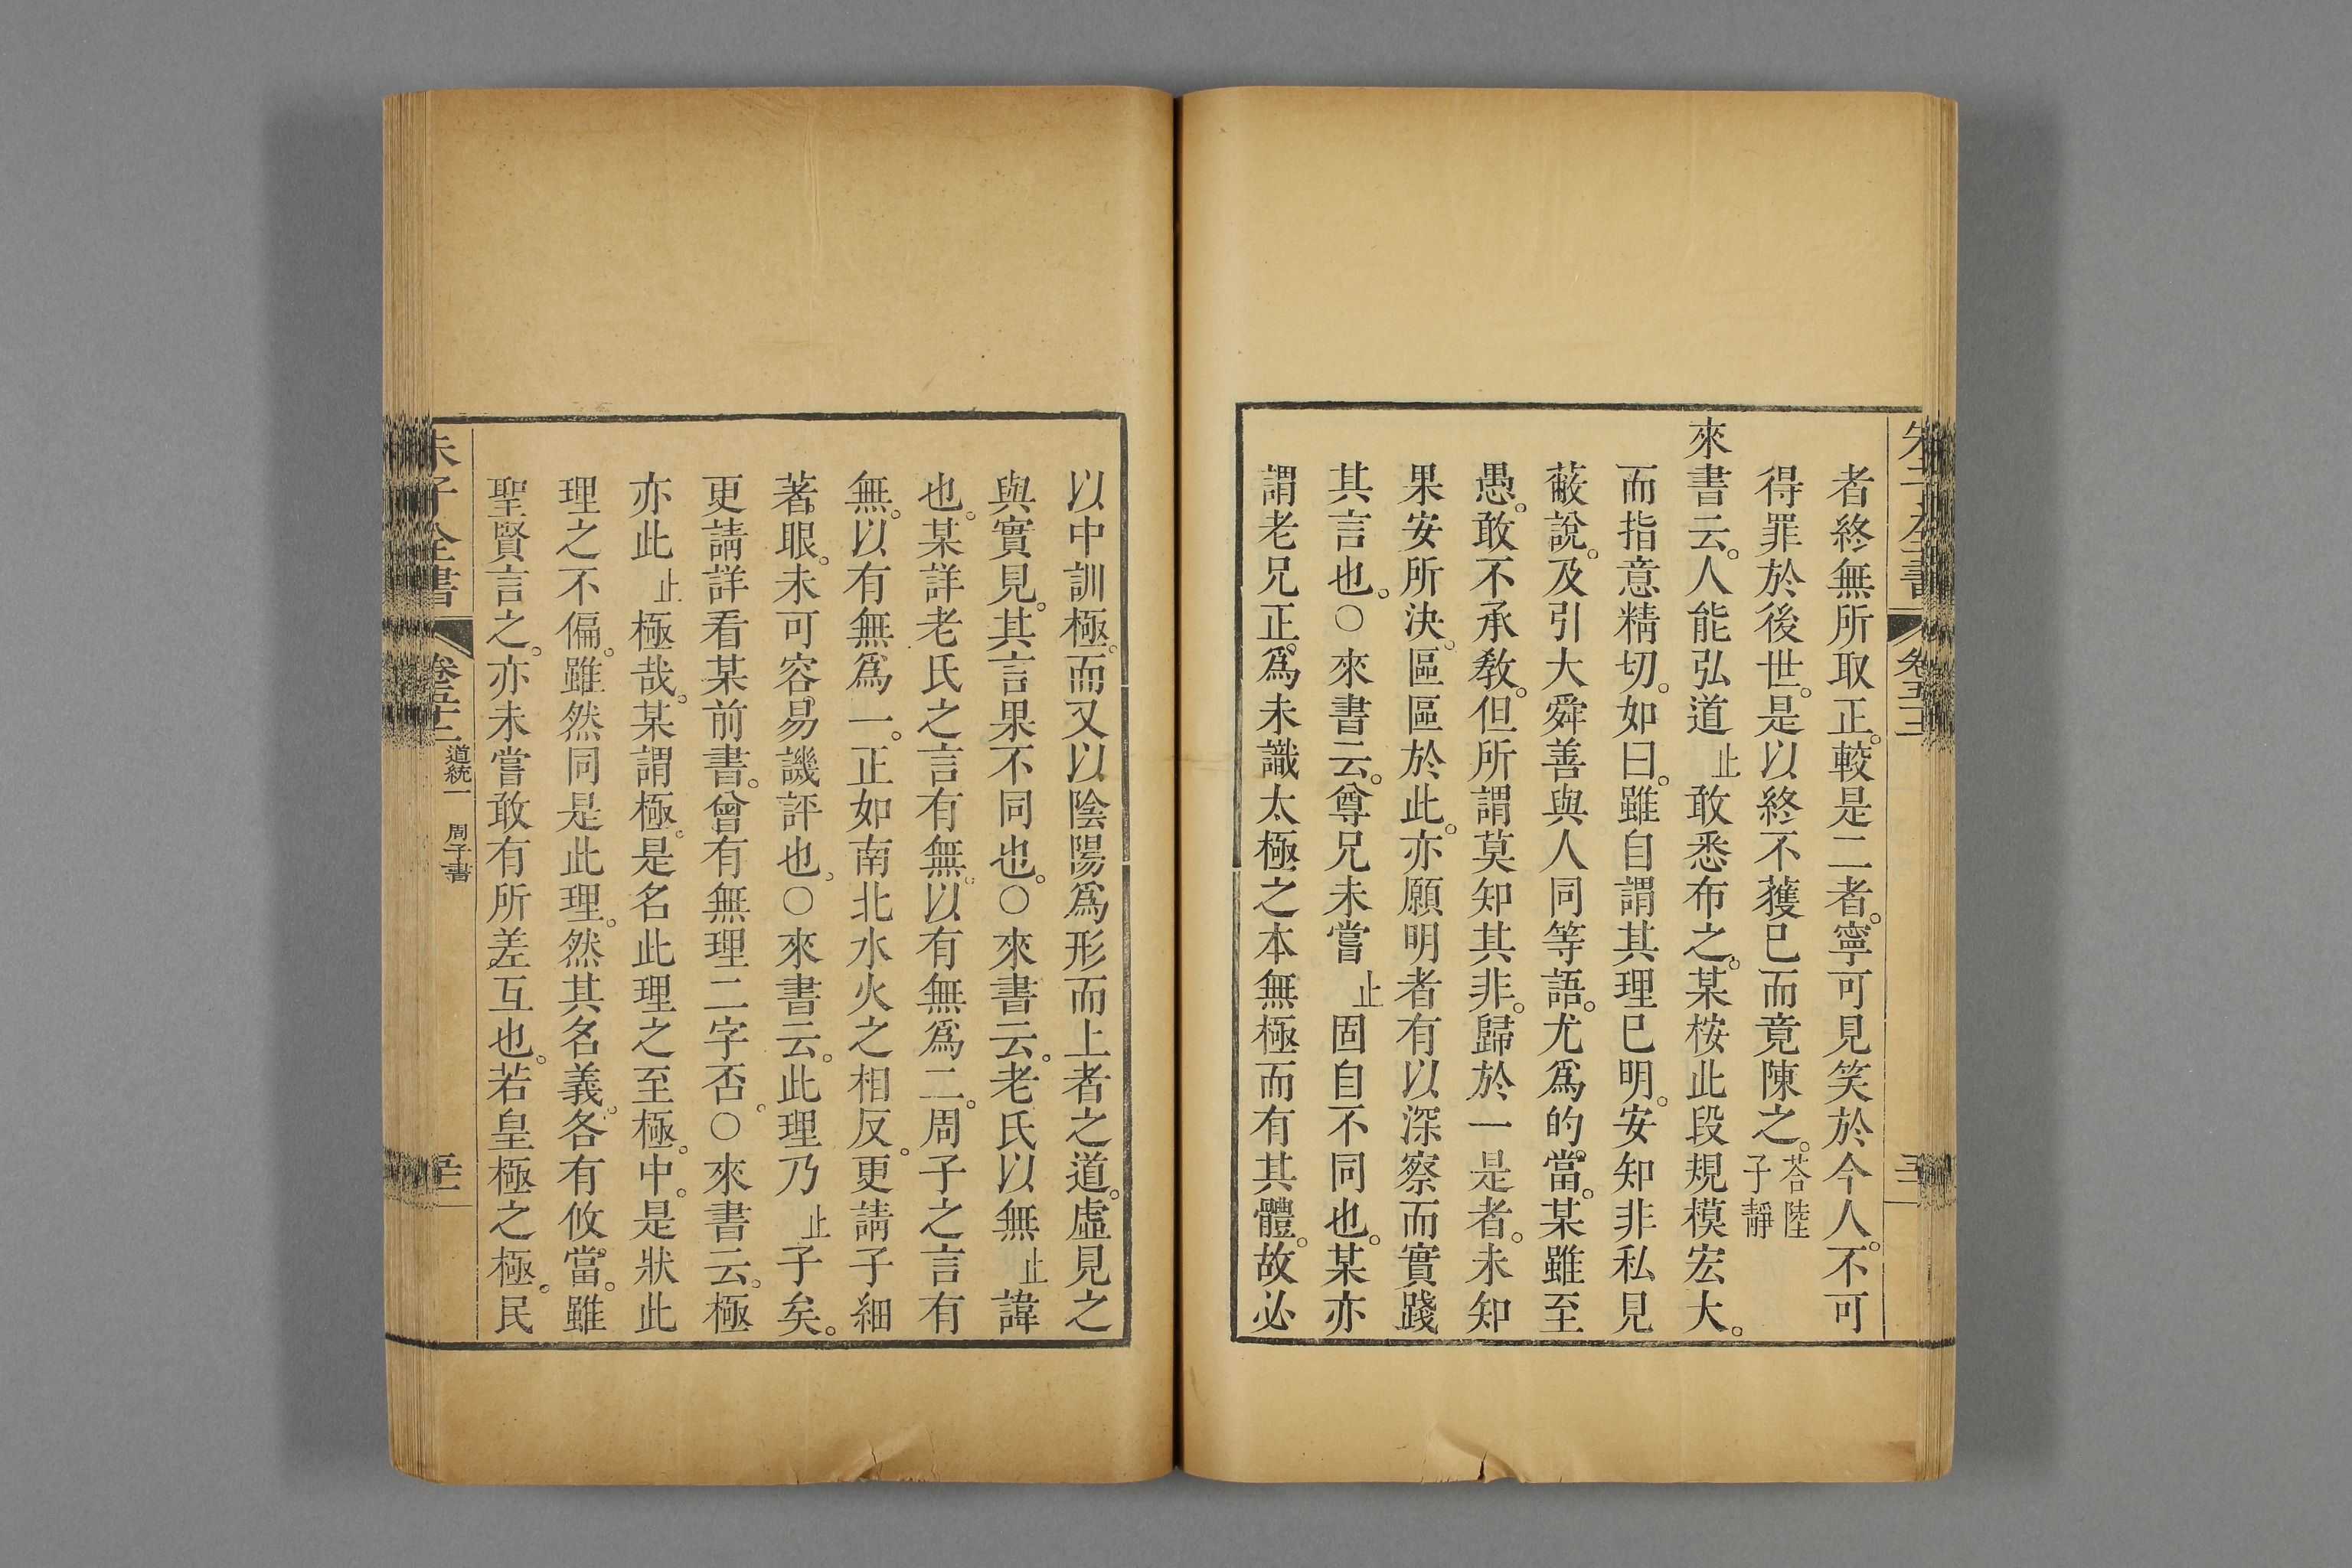 者終無所取正。較是二者。寧可見笑於今人。不可
得罪於後世。是以終不獲已而竟陳之。荅陸子靜
來書云。人能弘道止敢悉布之。某桉此段規模宏大。
而指意精切。如曰。雖自謂其理已明。安知非私見
蔽說。及引大舜善與人同等語。尤爲的當。某雖至
愚。敢不承教。但所謂莫知其非。歸於一是者。未知
果安所決。區區於此。亦願明者有以深察而實踐
其言也。○來書云。尊兄未嘗止固自不同也。某亦
謂老兄正爲未識太極之本無極而有其體。故必
以中訓極。而又以陰陽爲形而上者之道。虛見之
與實見。其言果不同也。○來書云。老氏以無止諱
也。某詳老氏之言有無。以有無爲二。周子之言有
無。以有無爲一。正如南北水火之相反。更請子細
著眼。未可容易譏評也。○來書云。此理乃止子矣。
更請詳看某前書。曾有無理二字否。○來書云。極
亦此止極哉。某謂極。是名此理之至極。中。是狀此
理之不偏。雖然同是此理。然其名義。各有攸當。雖
聖賢言之。亦未嘗敢有所差互也。若皇極之極。民
朱子全書 卷五十二 道統一 周子書